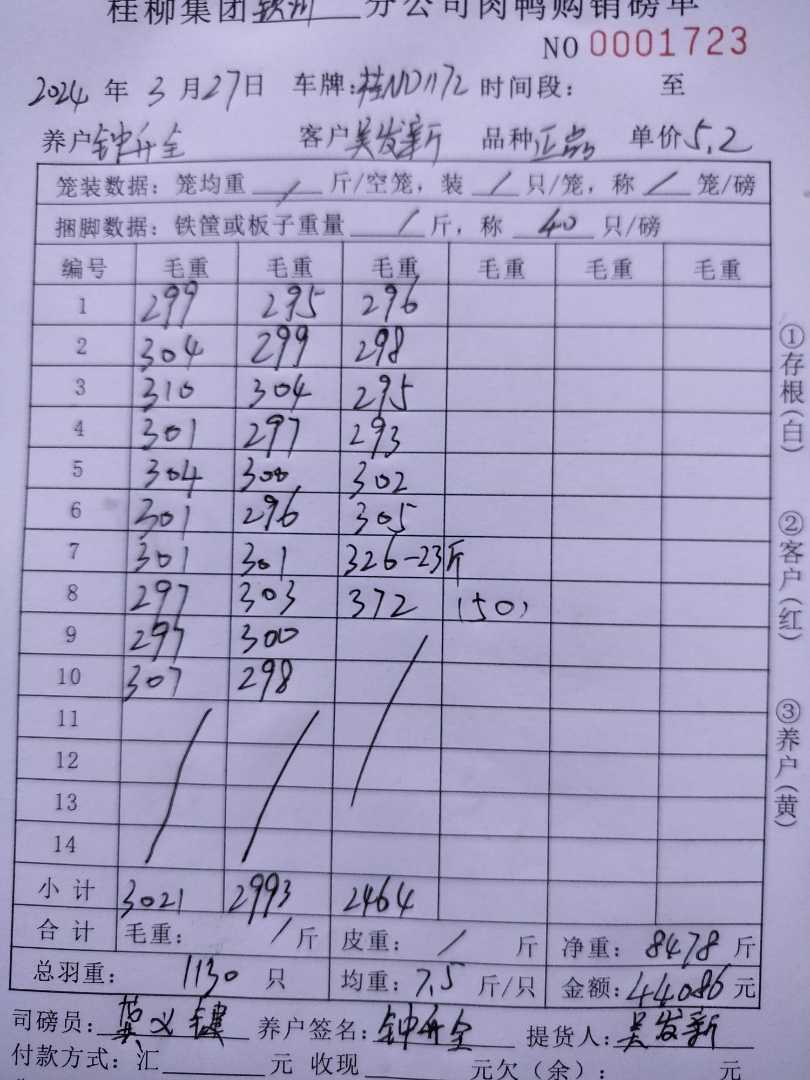 桂柳集团钦州 分公司肉鸭购销磅单
NO 0001723
2024年 3月27日 车牌:桂ND1172 时间段: 至
养户钟升全 客户吴发新 品种正品 单价5.2
笼装数据: 笼均重 / 斤/空笼, 装 / 只/笼, 称 / 笼/磅
捆脚数据: 铁筐或板子重量 / 斤, 称 40 只/磅
编号 毛重 毛重 毛重 毛重 毛重 毛重
1 299 295 296
2 304 299 298
3 310 304 295
4 301 297 293
5 304 300 302
6 301 296 305
7 301 301 326-23斤
8 297 303 372 (50)
9 297 300
10 307 298
11
12
13
14
小计 3021 2993 2464
合计 毛重: / 斤 皮重: / 斤 净重: 8478 斤
总羽重: 1130 只 均重: 7.5 斤/只 金额: 44086 元
司磅员: 养户签名: 钟升全 提货人: 吴发新
付款方式: 汇 元 收现 元欠(余): 元
①存根(白) ②客户(红) ③养户(黄)